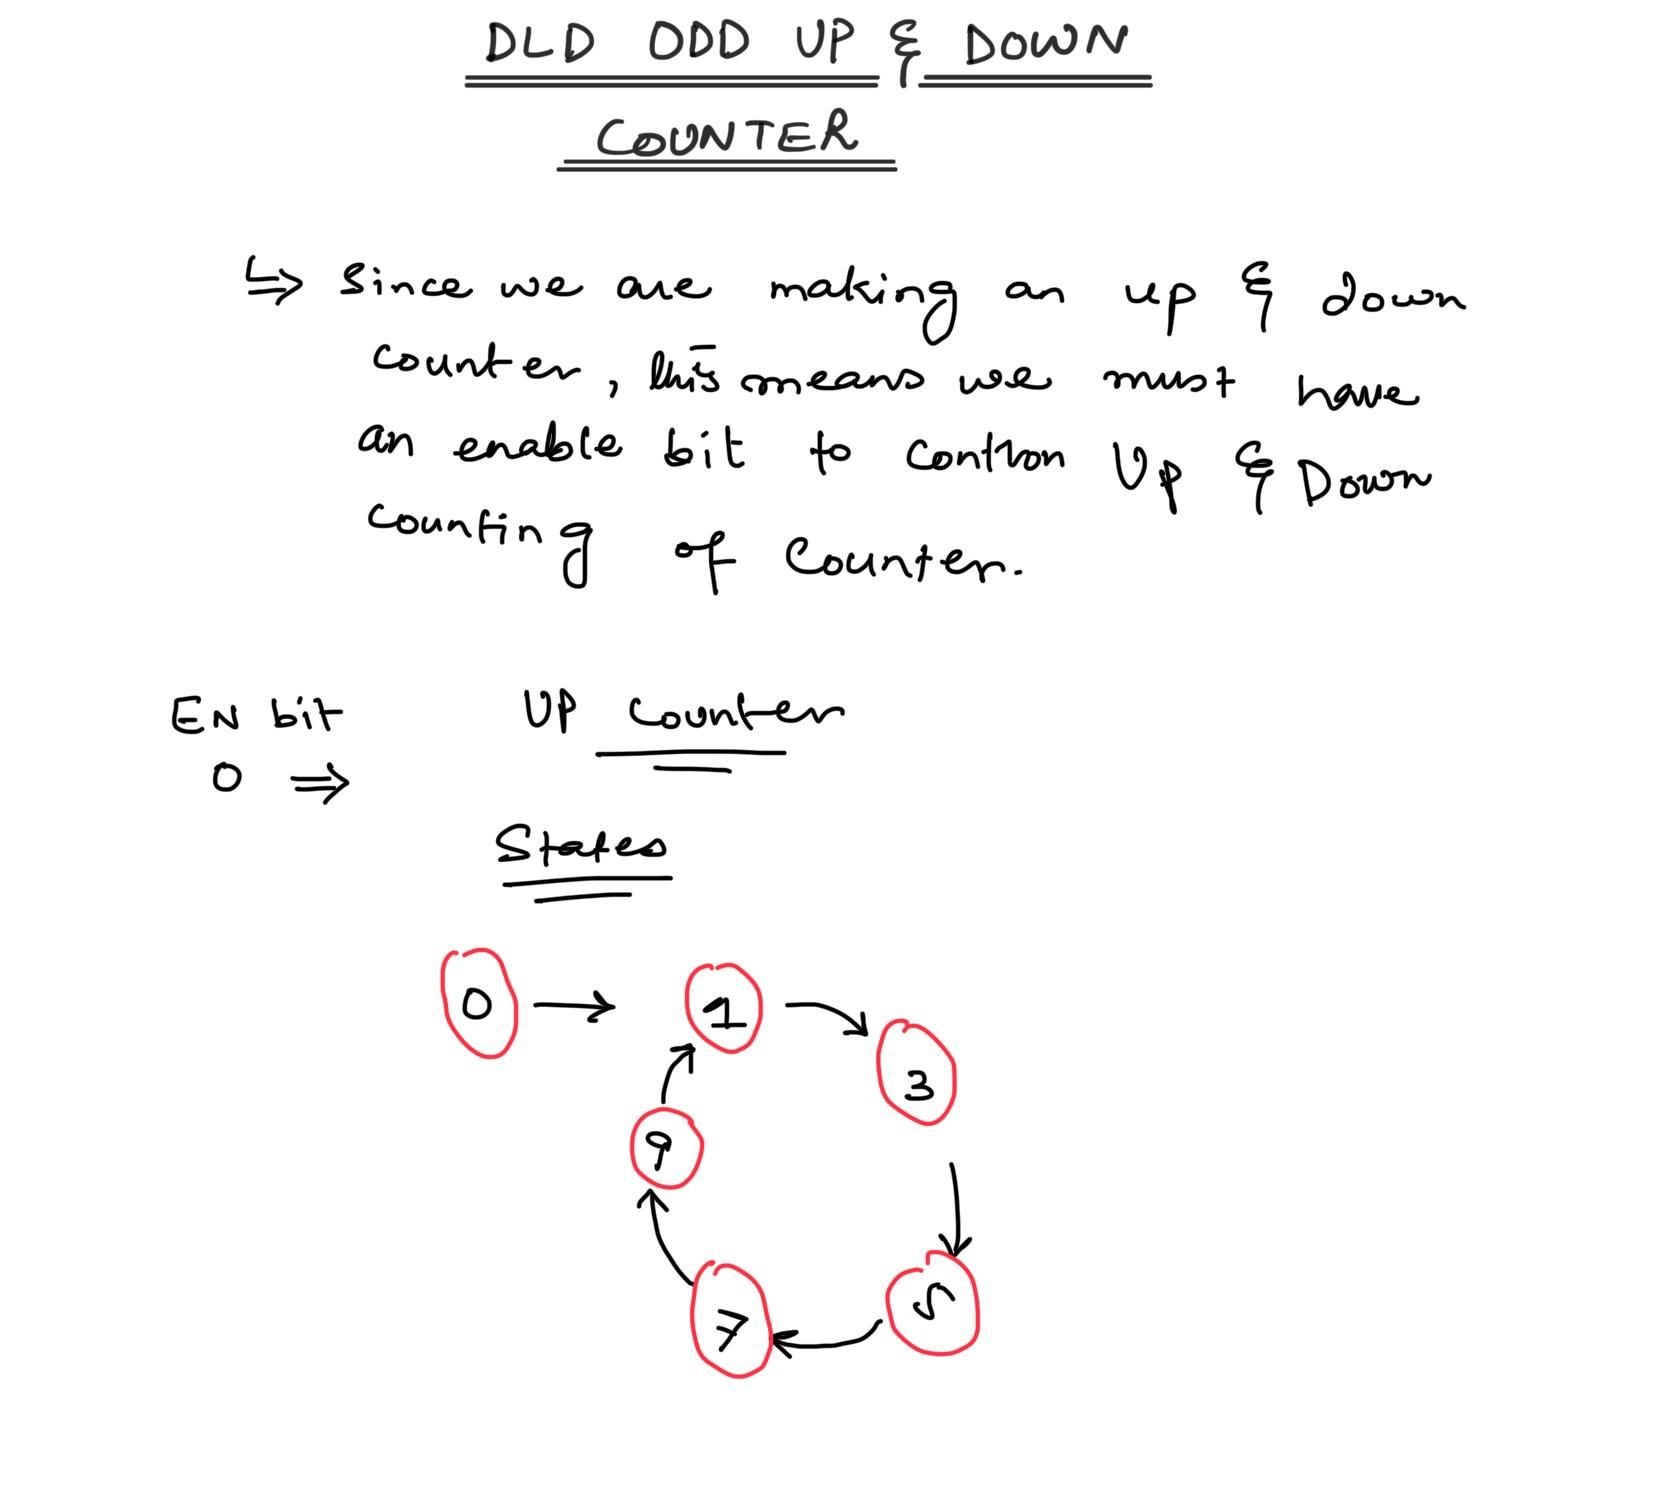 DLD ODD UP & DOWN
COUNTER
↳⇒ Since we are making an up & down
counter, this means we must have
an enable bit to contron Up & Down
counting of Counter.
EN bit UP Counter
0 ⇒
States
0 → 1
3
9
7
5